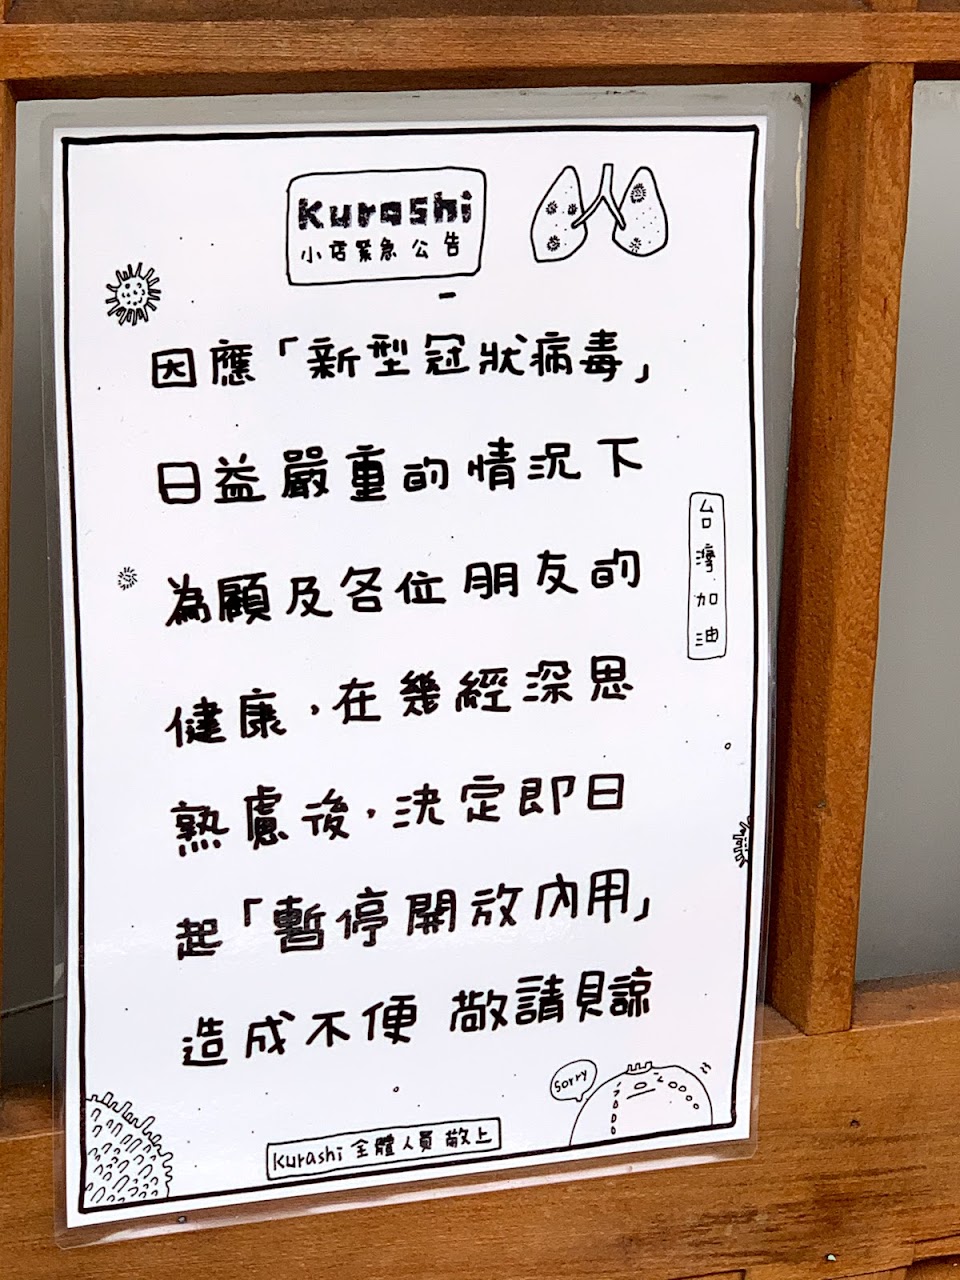 Kurashi
小店緊急公告
因應「新型冠狀病毒」
日益嚴重的情況下
為顧及各位朋友的
健康,在幾經深思
熟慮後,決定即日
起「暫停開放內用」
造成不便 敬請見諒
台灣加油
sorry
Kurashi 全體人員 敬上